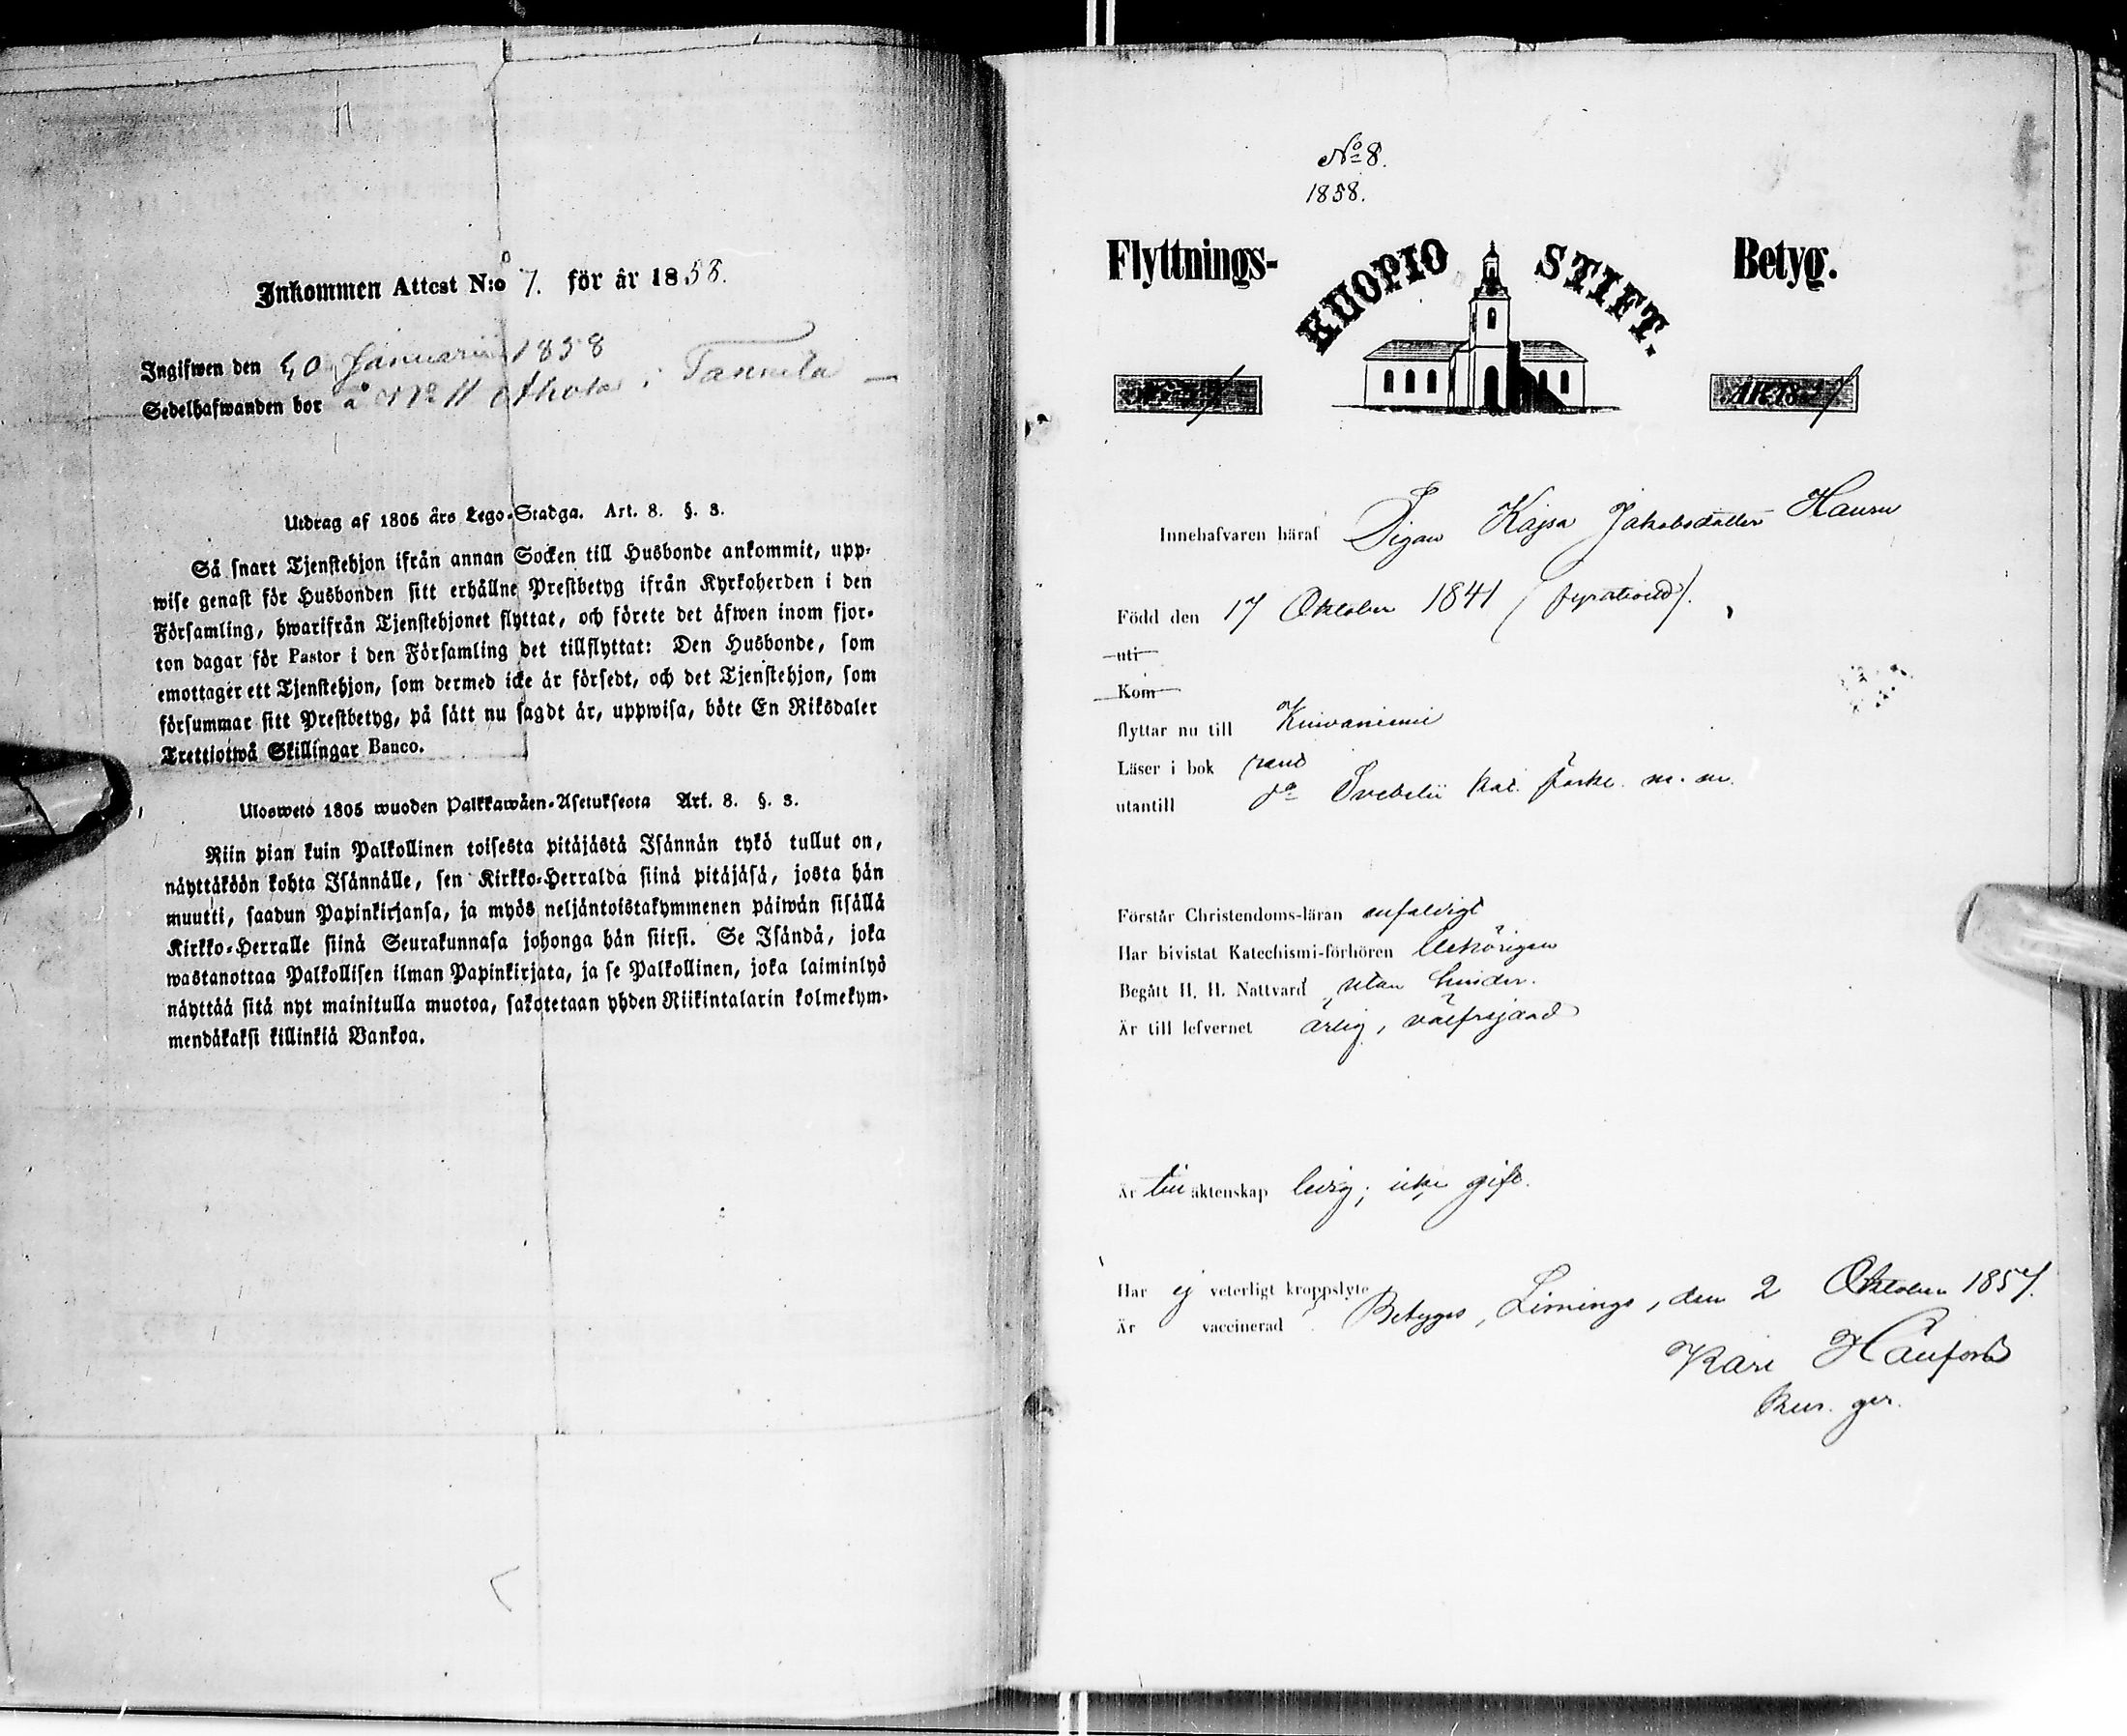 Inkommen Attest N:o 7. för år 1858.
Ingifwen den Januarii 1858
Sedelhafwanden bor å No 11 Ahola i Tannila
Utdrag af 1805 års Lego-Stadga. Art. 8. §. 3.
Så snart Tjenstehjon ifrån annan Socken till Husbonde ankommit, upp-
wise genast för Husbonden sitt erhållne Prestbetyg ifrån Kyrkoherden i den
Församling, hwarifrån Tjenstehjonet flyttat, och förete det äfwen inom fjor-
ton dagar för Pastor i den Församling det tillflyttat: Den Husbonde, som
emottager ett Tjenstehjon, som dermed icke är försedt, och det Tjenstehjon, som
försummar sitt Prestbetyg, på sätt nu sagdt är, uppwisa, böte En Riksdaler
Trettiotwå Skillingar Banco.
Uloswetö 1805 wuoden Palkkawäen-Asetuksesta Art. 8. §. 3.
Niin pian kuin Palkollinen toisesta pitäjästä Isännän tykö tullut on,
näyttäköön kohta Isännälle, sen Kirkko-Herralda siinä pitäjäsä, josta hän
muutti, saadun Papinkirjansa, ja myös neljäntoistakymmenen päiwän sisällä
Kirkko-Herralle siinä Seurakunnasa johonga hän siirsi. Se Isändä, joka
wastanottaa Palkollisen ilman Papinkirjata, ja se Palkollinen, joka laiminlyö
näyttää sitä nyt mainitulla muotoa, sakotetaan yhden Riikintalarin kolmekym-
mendäkaksi killinkiä Bankoa.
No 8.
1858.
Flyttnings- KUOPIO STIFT. Betyg.
ÅR 18 7
Innehafvaren häraf Pigan Kajsa Jakobsdotter
Född den 17 Oktober 1841 (fyrationd).
uti
Kom
flyttar nu till Kiiminki
Läser i bok rent
utantill da Svebelii kat. förkl. m. m.
Förstår Christendoms-läran enfaldigt
Har bivistat Katechismi-förhören behörigen
Begått H. H. Nattvard utan hinder.
Är till lefvernet ärlig, välfrejdad
Är till äktenskap ledig; icke gift.
Har ej veterligt kroppslyte
Är vaccinerad Betygas, Limingo, den 2 Oktober 1857.
Karl